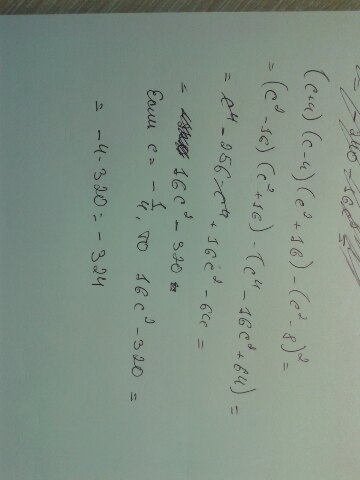 (c+4)(c-4)(c²+16)-(c²-8)²=
=(c²-16)(c²+16)-(c⁴-16c²+64)=
=c⁴-256-c⁴+16c²-64=
= 16c²-320
Если c=-1/4, то 16c²-320=
= -4-320=-324